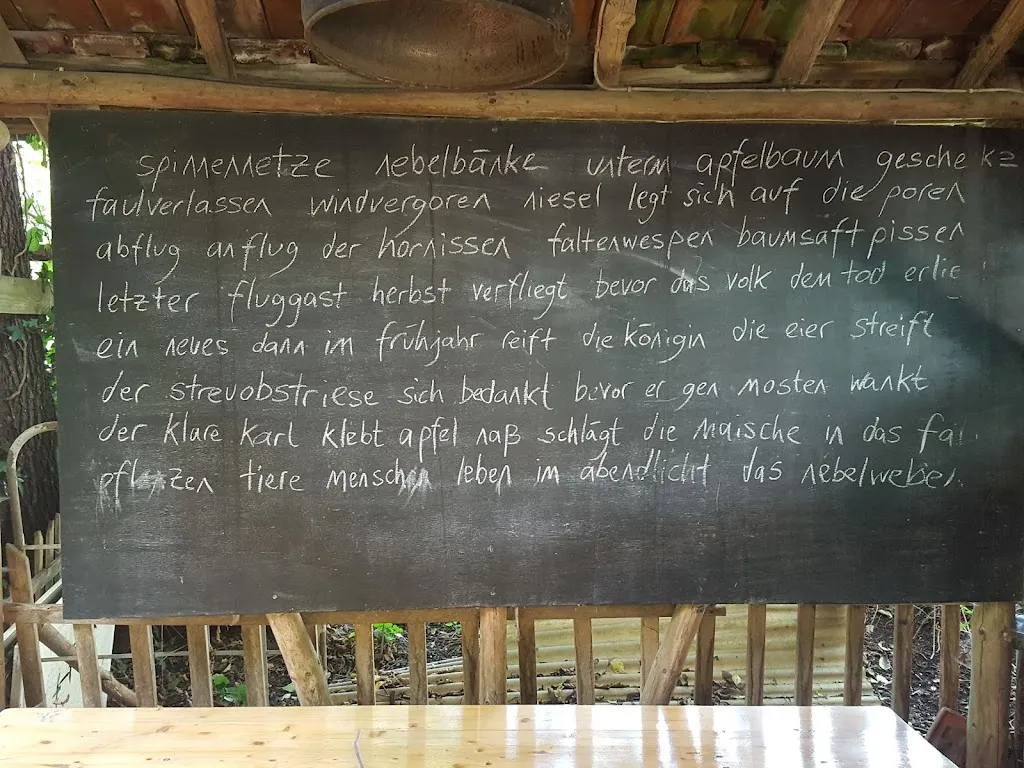 spinnennetze nebelbänke unterm apfelbaum gesche kz
faulverlassen windvergoren niesel legt sich auf die poren
abflug anflug der hornissen faltenwespen baumsaft pissen
letzter fluggast herbst verfliegt bevor das volk dem tod
ein neues dann im frühjahr reift die königin die eier streift
der streuobstriese sich bedankt bevor er gen mosten wankt
der klare karl klebt apfel naß schlägt die maische in das
pflanzen tiere menschen leben im abendlicht das